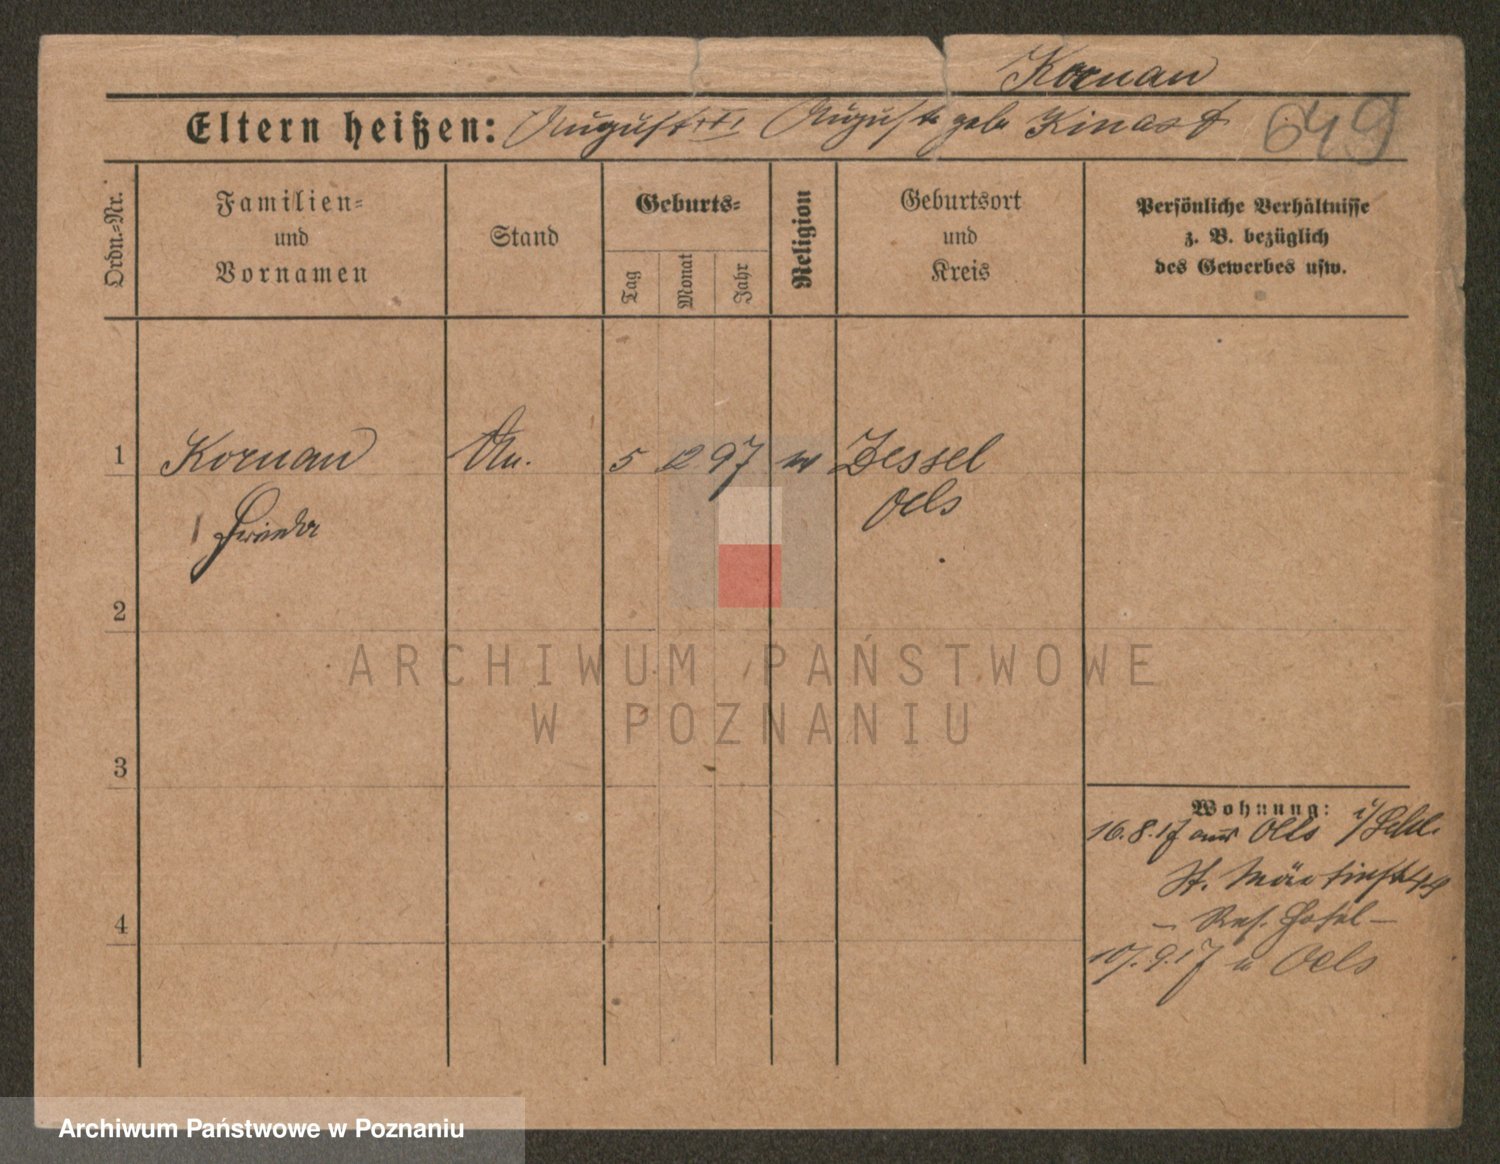 Kornau
Eltern heißen: August u. Auguste geb. Kinast
649
Ordn.-Nr.
Familien-
und
Vornamen
Stand
Geburts-
Tag
Monat
Jahr
Religion
Geburtsort
und
Kreis
Persönliche Verhältnisse
z. B. bezüglich
des Gewerbes usw.
1 Kornau 5 12 97 Zessel
Frieda Oels
2
3
4
Wohnung:
16.8.17 aus Oels i/Schl.
St. Martinstr 49
10/.9.17 n Oels
ARCHIWUM PAŃSTWOWE
W POZNANIU
Archiwum Państwowe w Poznaniu